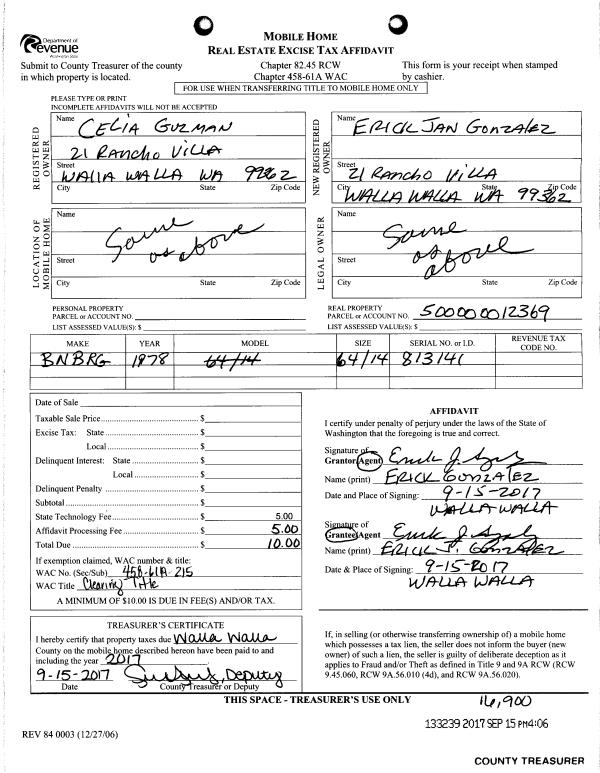 Department of
Revenue
Washington State
MOBILE HOME
REAL ESTATE EXCISE TAX AFFIDAVIT
Submit to County Treasurer of the county
in which property is located.
Chapter 82.45 RCW
Chapter 458-61A WAC
This form is your receipt when stamped
by cashier.
FOR USE WHEN TRANSFERRING TITLE TO MOBILE HOME ONLY
PLEASE TYPE OR PRINT
INCOMPLETE AFFIDAVITS WILL NOT BE ACCEPTED
REGISTERED OWNER
Name CELIA GUZMAN
21 Rancho Villa
Street
WALLA WALLA WA 99362
City State Zip Code
NEW REGISTERED OWNER
Name ERICK JAN GONZALEZ
21 Rancho Villa
Street
WALLA WALLA WA 99362
City State Zip Code
LOCATION OF MOBILE HOME
Name
Same
as above
Street
City State Zip Code
LEGAL OWNER
Name
Same
as above
Street
City State Zip Code
PERSONAL PROPERTY
PARCEL or ACCOUNT NO.
LIST ASSESSED VALUE(S): $
REAL PROPERTY
PARCEL or ACCOUNT NO. 500000012369
LIST ASSESSED VALUE(S): $
MAKE YEAR MODEL SIZE SERIAL NO. or I.D. REVENUE TAX CODE NO.
BNBRG 1978 64/14 64/14 813141
Date of Sale
Taxable Sale Price $
Excise Tax: State $
Local $
Delinquent Interest: State $
Local $
Delinquent Penalty $
Subtotal $
State Technology Fee $ 5.00
Affidavit Processing Fee $ 5.00
Total Due $ 10.00
If exemption claimed, WAC number & title:
WAC No. (Sec/Sub) 458-61A-215
WAC Title Clearing Title
A MINIMUM OF $10.00 IS DUE IN FEE(S) AND/OR TAX.
AFFIDAVIT
I certify under penalty of perjury under the laws of the State of
Washington that the foregoing is true and correct.
Signature of
Grantor/Agent
Name (print) ERICK GONZALEZ
Date and Place of Signing: 9-15-2017
WALLA WALLA
Signature of
Grantee/Agent
Name (print) ERICK J. GONZALEZ
Date & Place of Signing: 9-15-2017
WALLA WALLA
TREASURER'S CERTIFICATE
I hereby certify that property taxes due Walla Walla
County on the mobile home described hereon have been paid to and
including the year 2017
9-15-2017 Deputy
Date County Treasurer or Deputy
If, in selling (or otherwise transferring ownership of) a mobile home
which possesses a tax lien, the seller does not inform the buyer (new
owner) of such a lien, the seller is guilty of deliberate deception as it
applies to Fraud and/or Theft as defined in Title 9 and 9A RCW (RCW
9.45.060, RCW 9A.56.010 (4d), and RCW 9A.56.020).
THIS SPACE - TREASURER'S USE ONLY
16,900
133239 2017 SEP 15 PM4:06
REV 84 0003 (12/27/06)
COUNTY TREASURER